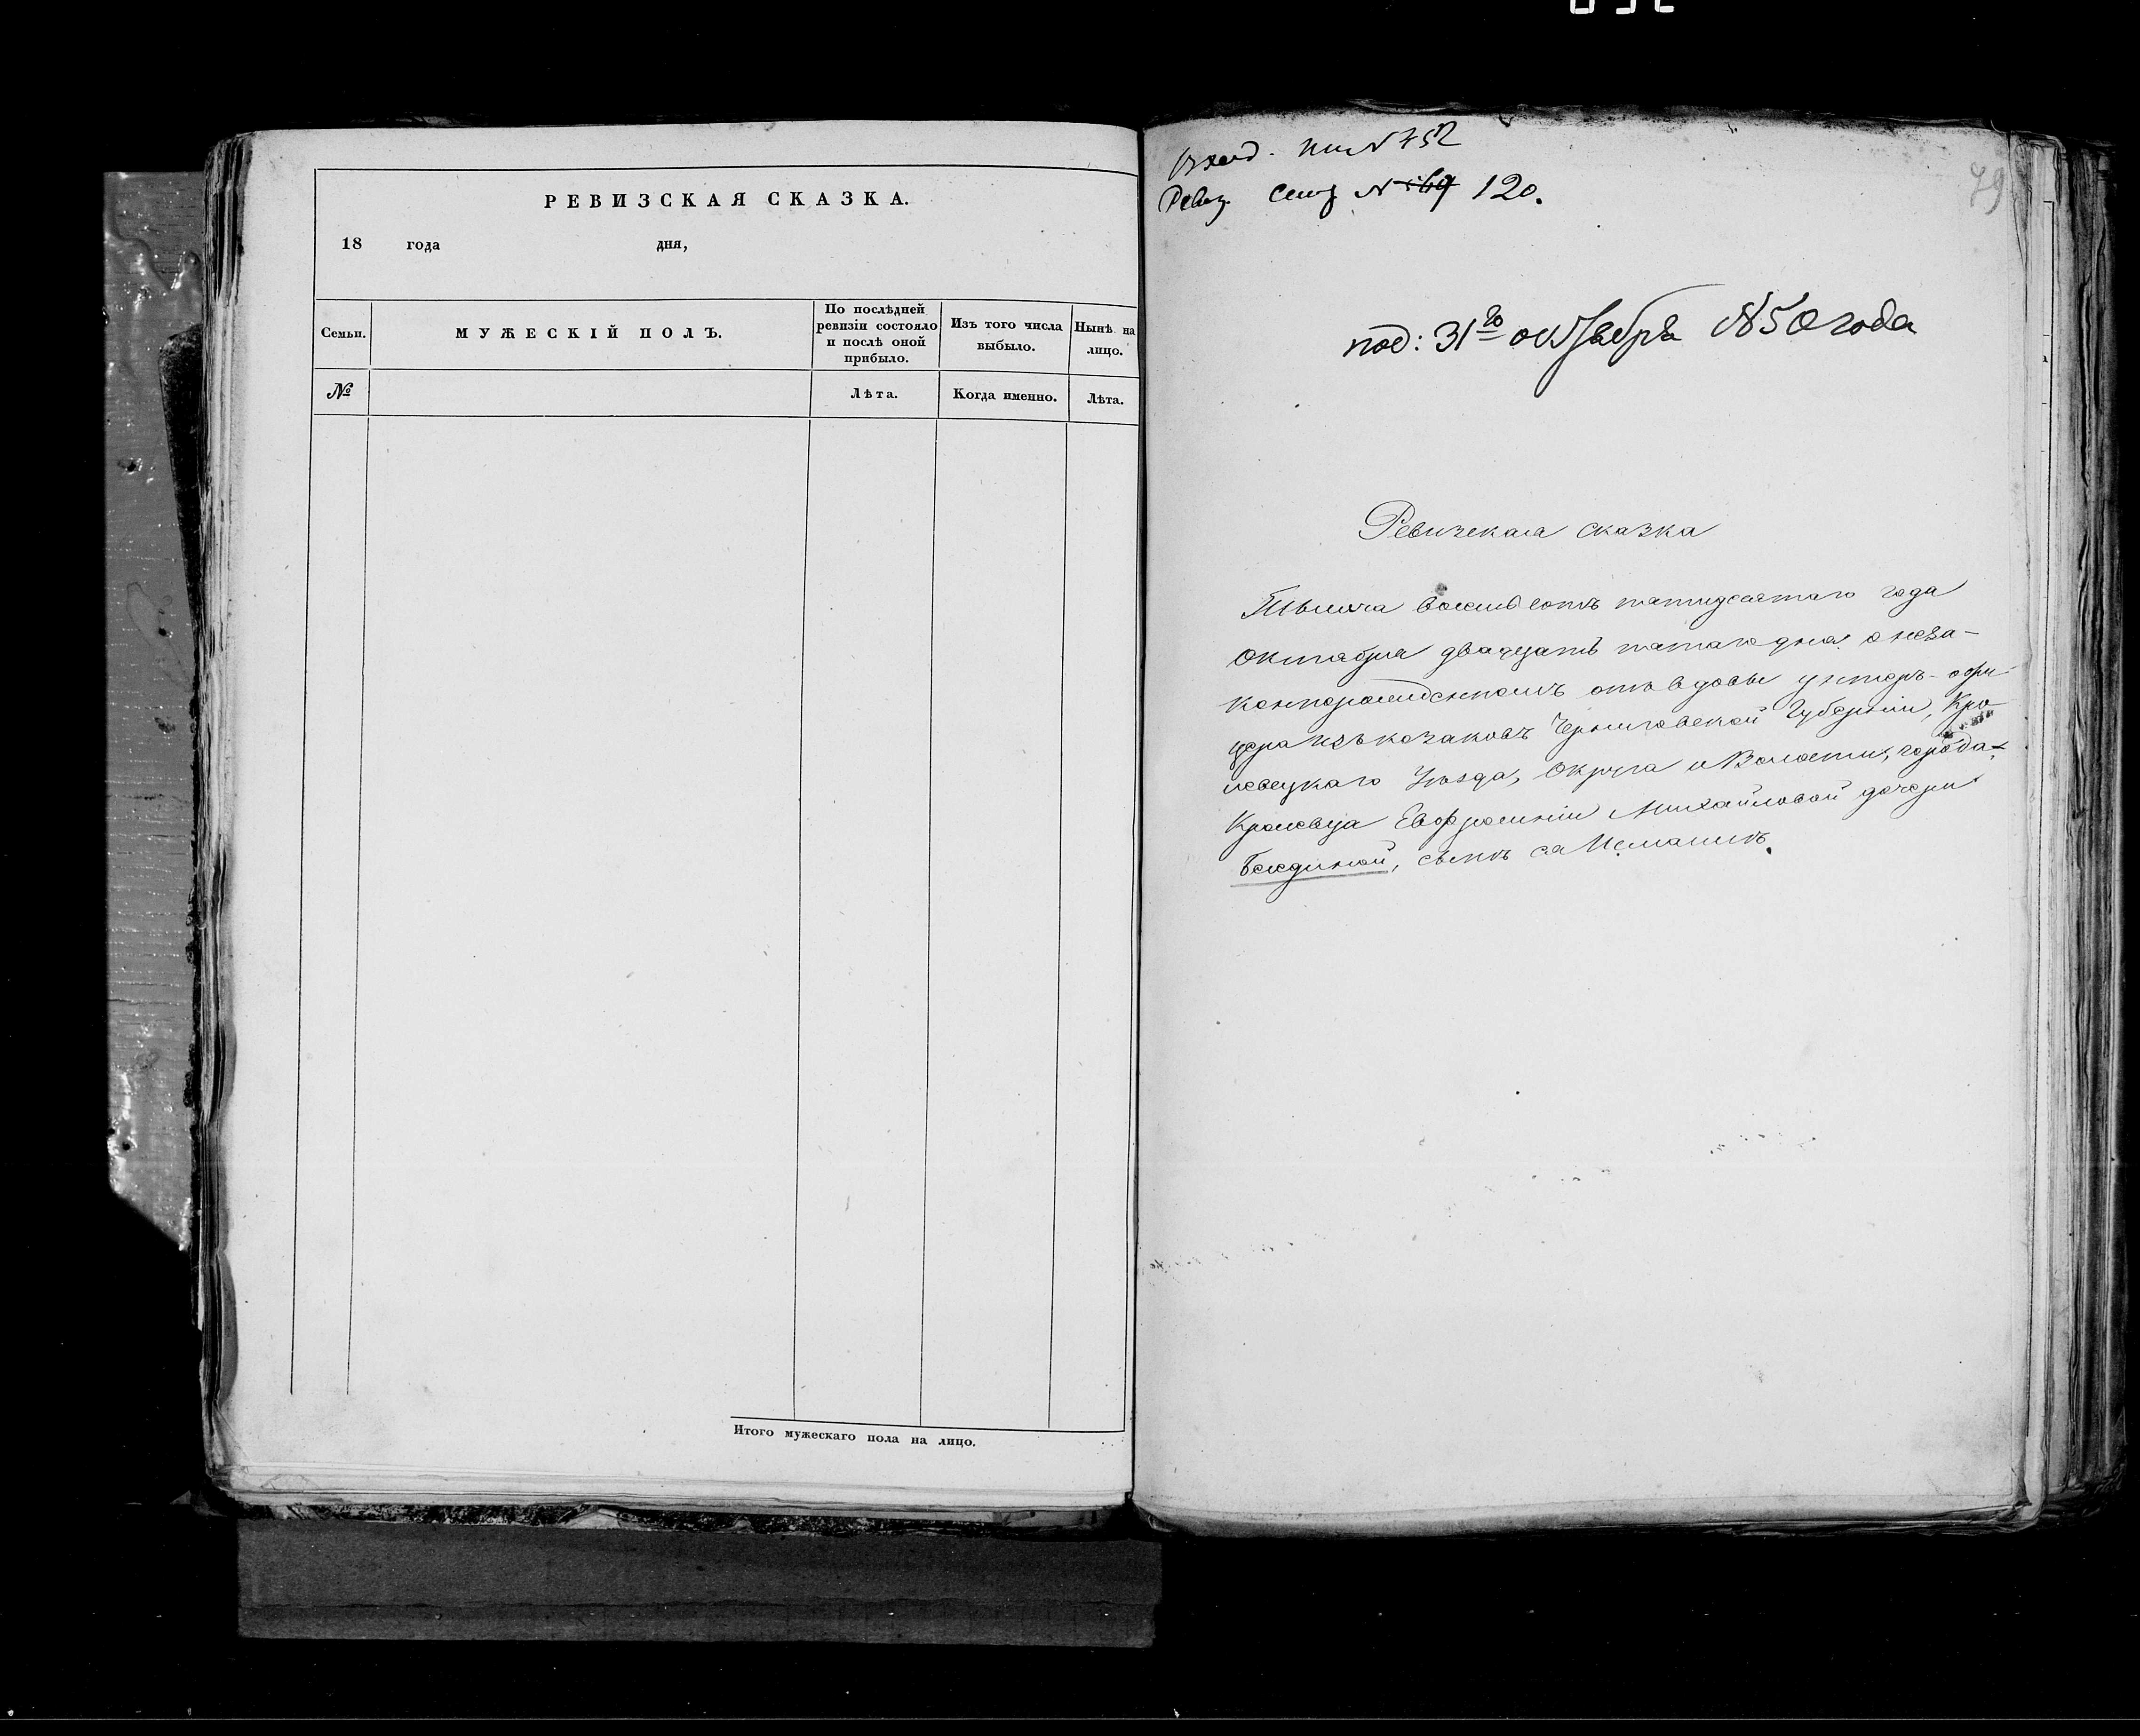 РЕВИЗСКАЯ СКАЗКА.
18 года дня,
Семьи. МУЖЕСКІЙ ПОЛЪ. По послѣдней ревизіи состояло и послѣ оной прибыло. Изъ того числа выбыло. Нынѣ на лицо.
№ Лѣта. Когда именно. Лѣта.
Итого мужескаго пола на лицо.
Входд. №752
Ревиз. Сказ № 169 120.
79
под: 31го октября 1850 года
Ревизская сказка
Тысяча восемь сотъ пятидесятаго года
Октября двадцать пятаго дня, о неза-
коннорожденномъ отъ вдовы унтеръ-офи-
цера изъ козаковъ Черниговской Губерніи, Кро-
левецкаго Уѣзда, Округа и Волости, города
Кролевца Евфросиніи Михайловой дочери
Бѣлединой, сынъ ея